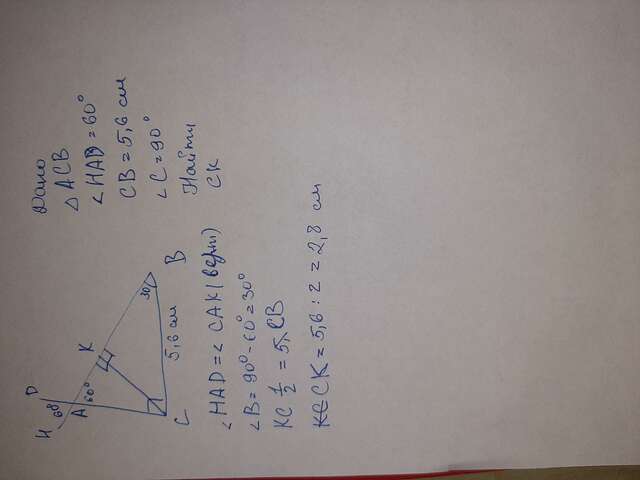 Дано
△ ACB
∠HAD = 60°
CB = 5,6 см
∠C = 90°
Найти
CK
H
D
60°
A
60°
K
30
B
C
5,6 см
∠HAD = ∠CAK (верт)
∠B = 90° - 60° = 30°
CK = 5,6 : 2 = 2,8 см